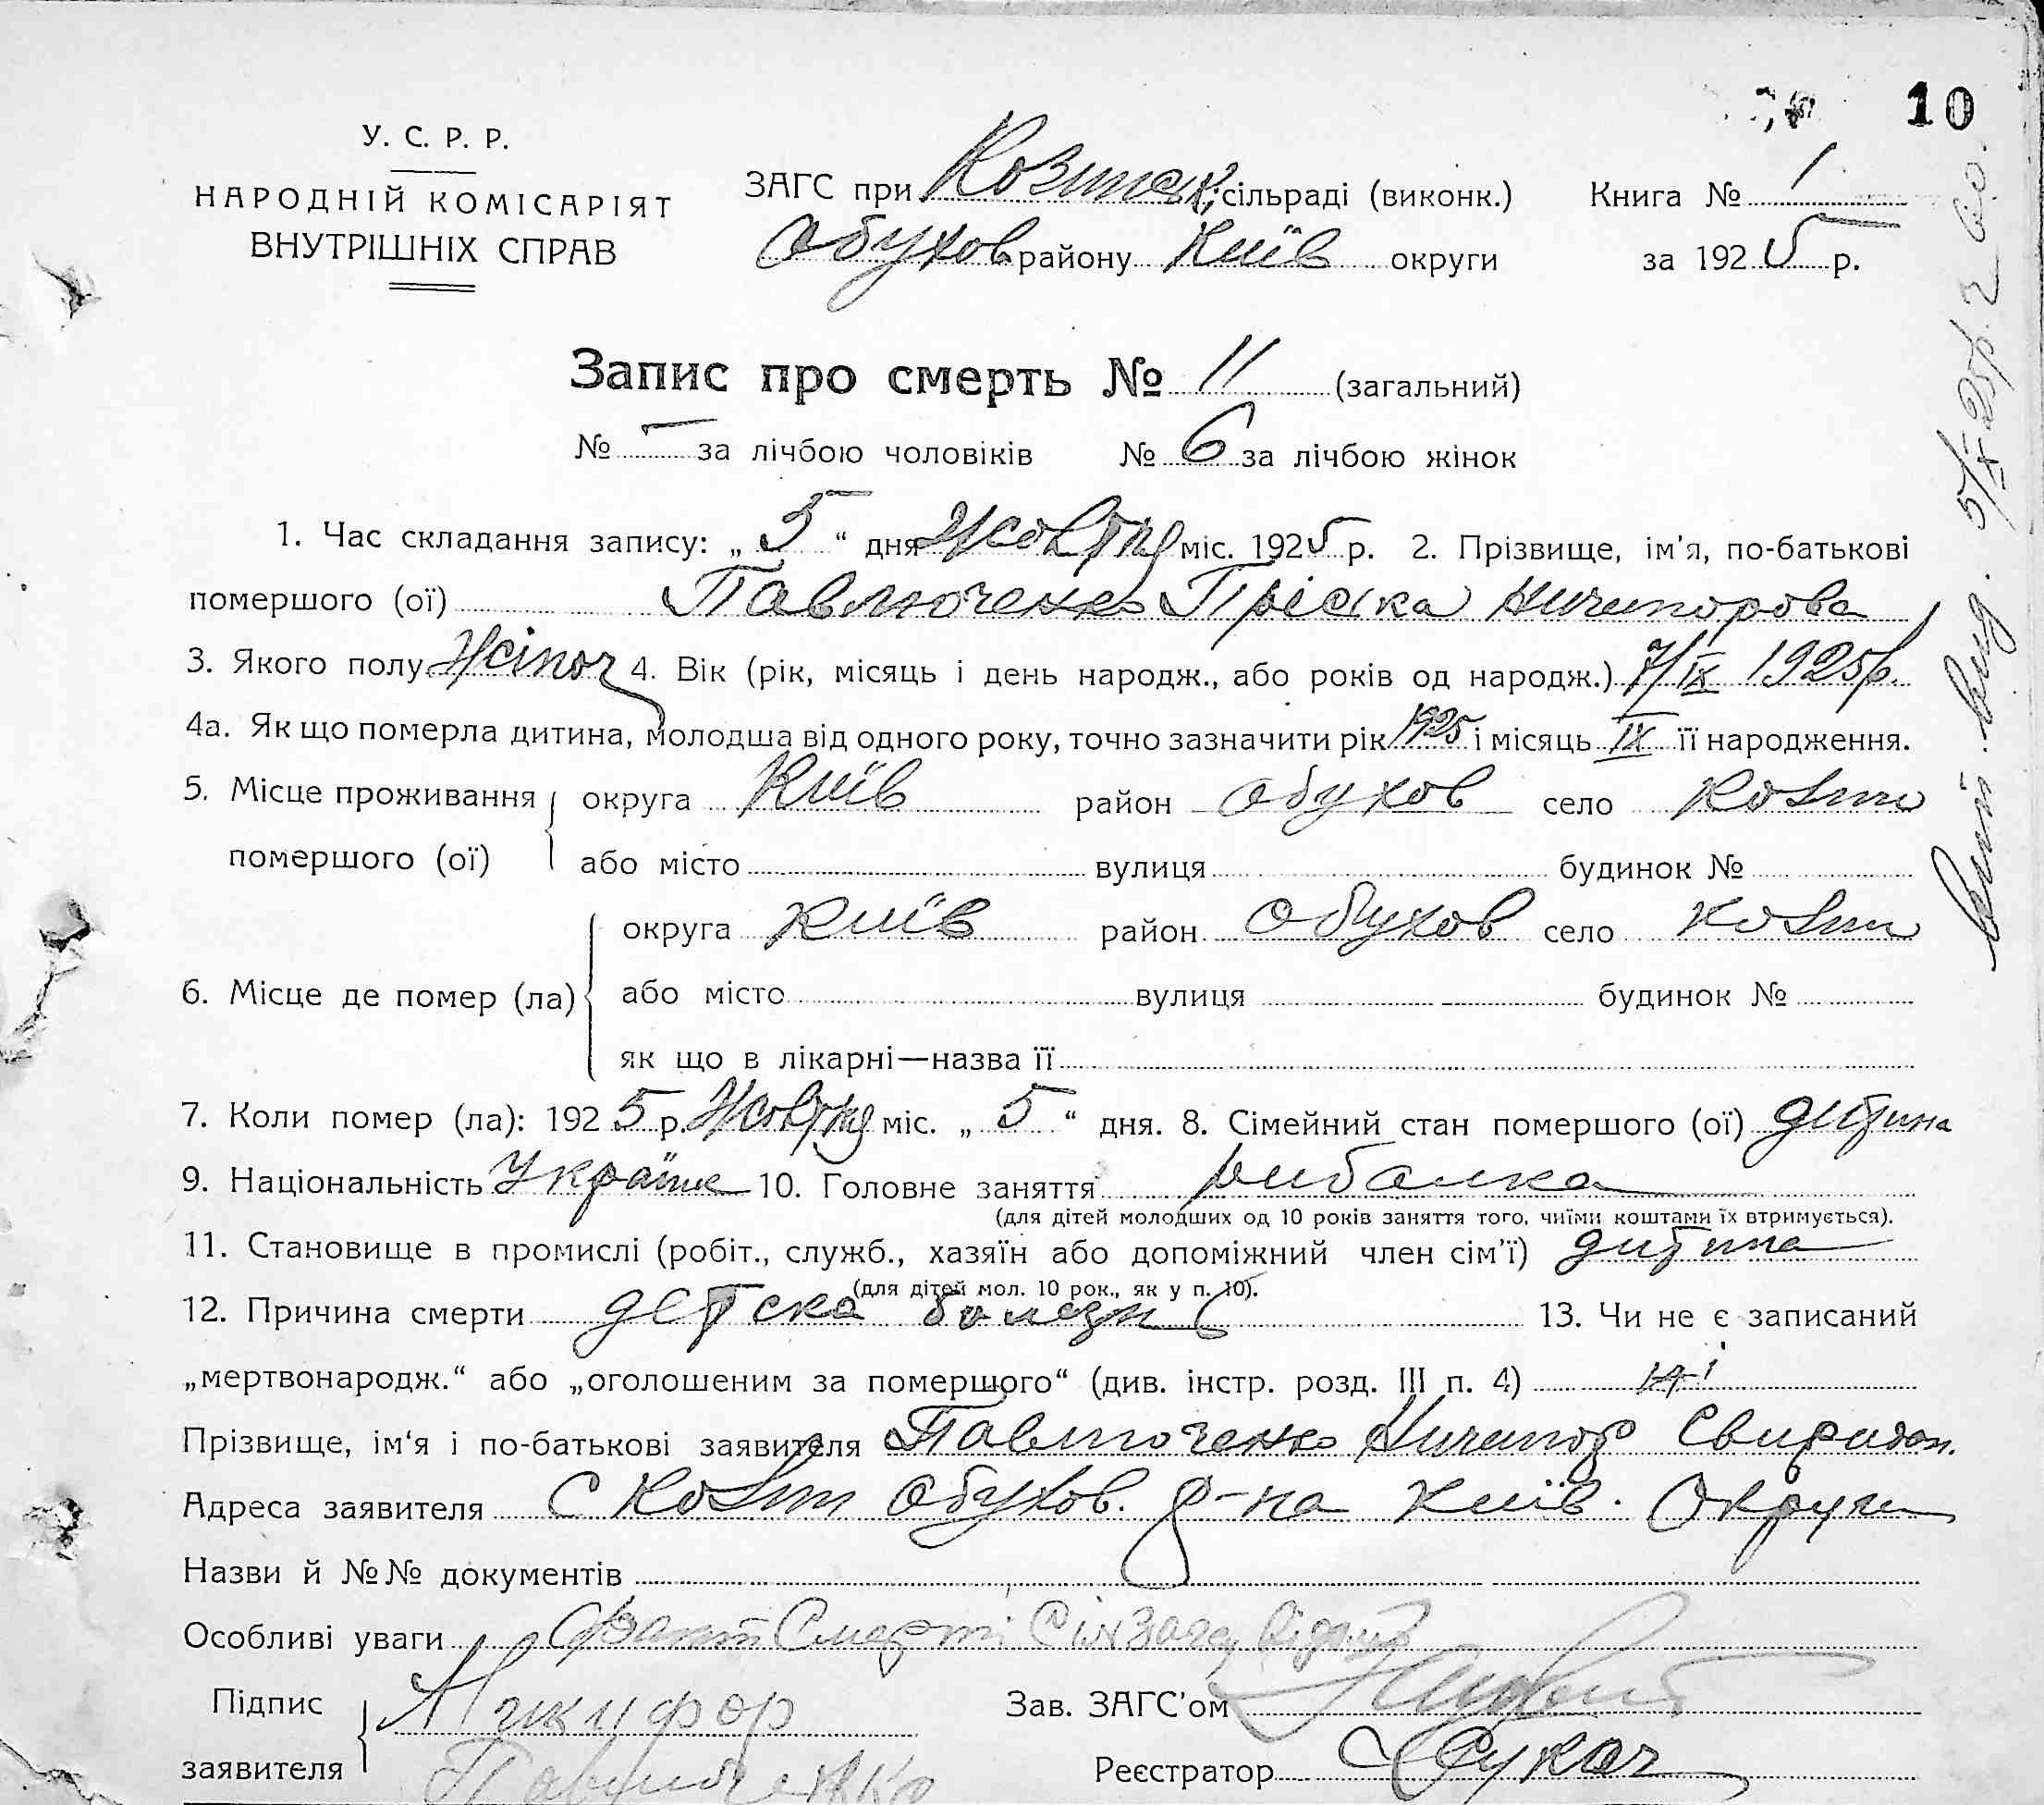 10
У. С. Р. Р.
НАРОДНІЙ КОМІСАРІЯТ
ВНУТРІШНІХ СПРАВ
ЗАГС при Козинськ. сільраді (виконк.) Книга № 1
Обухов району Київ округи за 1925 р.
Запис про смерть № 11 (загальний)
№ — за лічбою чоловіків № 6 за лічбою жінок
1. Час складання запису: „ 5 “ дня Жовтня міс. 1925 р. 2. Прізвище, ім'я, по-батькові
помершого (ої) Павлюченко Пріська Ничипорова
3. Якого полу Жіноч 4. Вік (рік, місяць і день народж., або років од народж.) 7/IX 1925р.
4а. Як що померла дитина, молодша від одного року, точно зазначити рік 1925 і місяць IX її народження.
5. Місце проживання округа Київ район Обухов село Козин
помершого (ої) або місто вулиця будинок №
округа Київ район Обухов село Козин
6. Місце де помер (ла) або місто вулиця будинок №
як що в лікарні—назва її
7. Коли помер (ла): 1925 р. Жовтня міс. „ 5 “ дня. 8. Сімейний стан помершого (ої) дитина
9. Національність Україн 10. Головне заняття рибалка
(для дітей молодших од 10 років заняття того, чиїми коштами їх втримується).
11. Становище в промислі (робіт., служб., хазяїн або допоміжний член сім'ї) дитина
(для дітей мол. 10 рок., як у п. 10).
12. Причина смерти детска болезнь 13. Чи не є записаний
„мертвонародж.“ або „оголошеним за помершого“ (див. інстр. розд. III п. 4) ні
Прізвище, ім‘я і по-батькові заявителя Павлюченко Ничипор Свиридон.
Адреса заявителя с Козин Обухов. р-на Київ. Округи
Назви й №№ документів
Особливі уваги Факт Смерті Сілзагсу відомий
Підпис Никифор Зав. ЗАГС'ом
заявителя Павлюченко Реєстратор Сукач
5/X 25р.